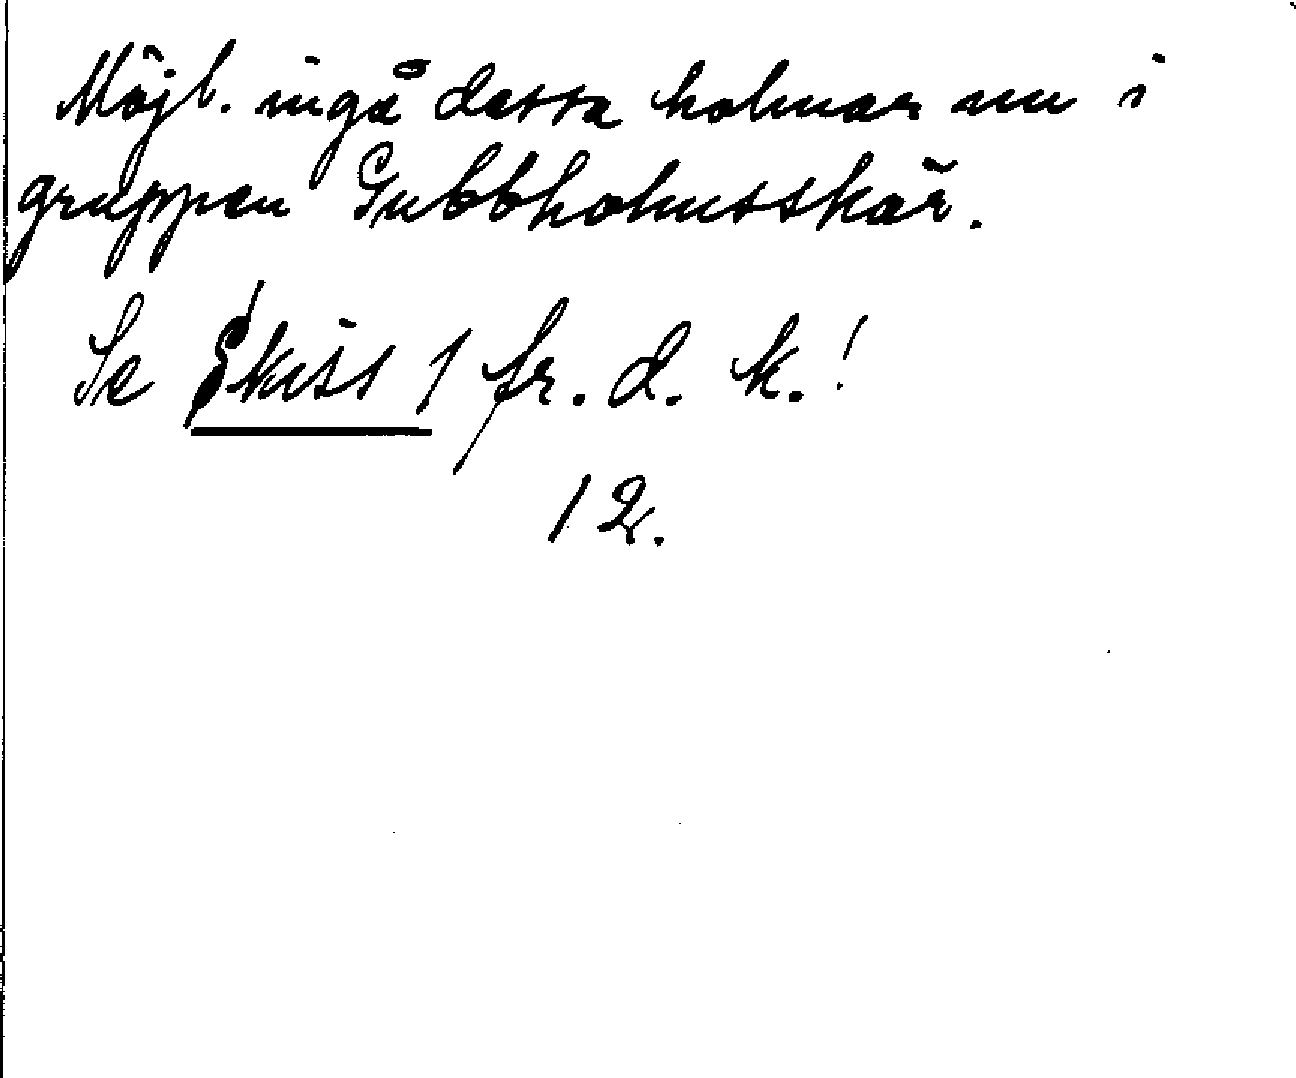 Möjl. ingå dessa holmar nu i
gruppen Gubbholmsskär.
Se Skiss 1 fr. d. k.!
12.